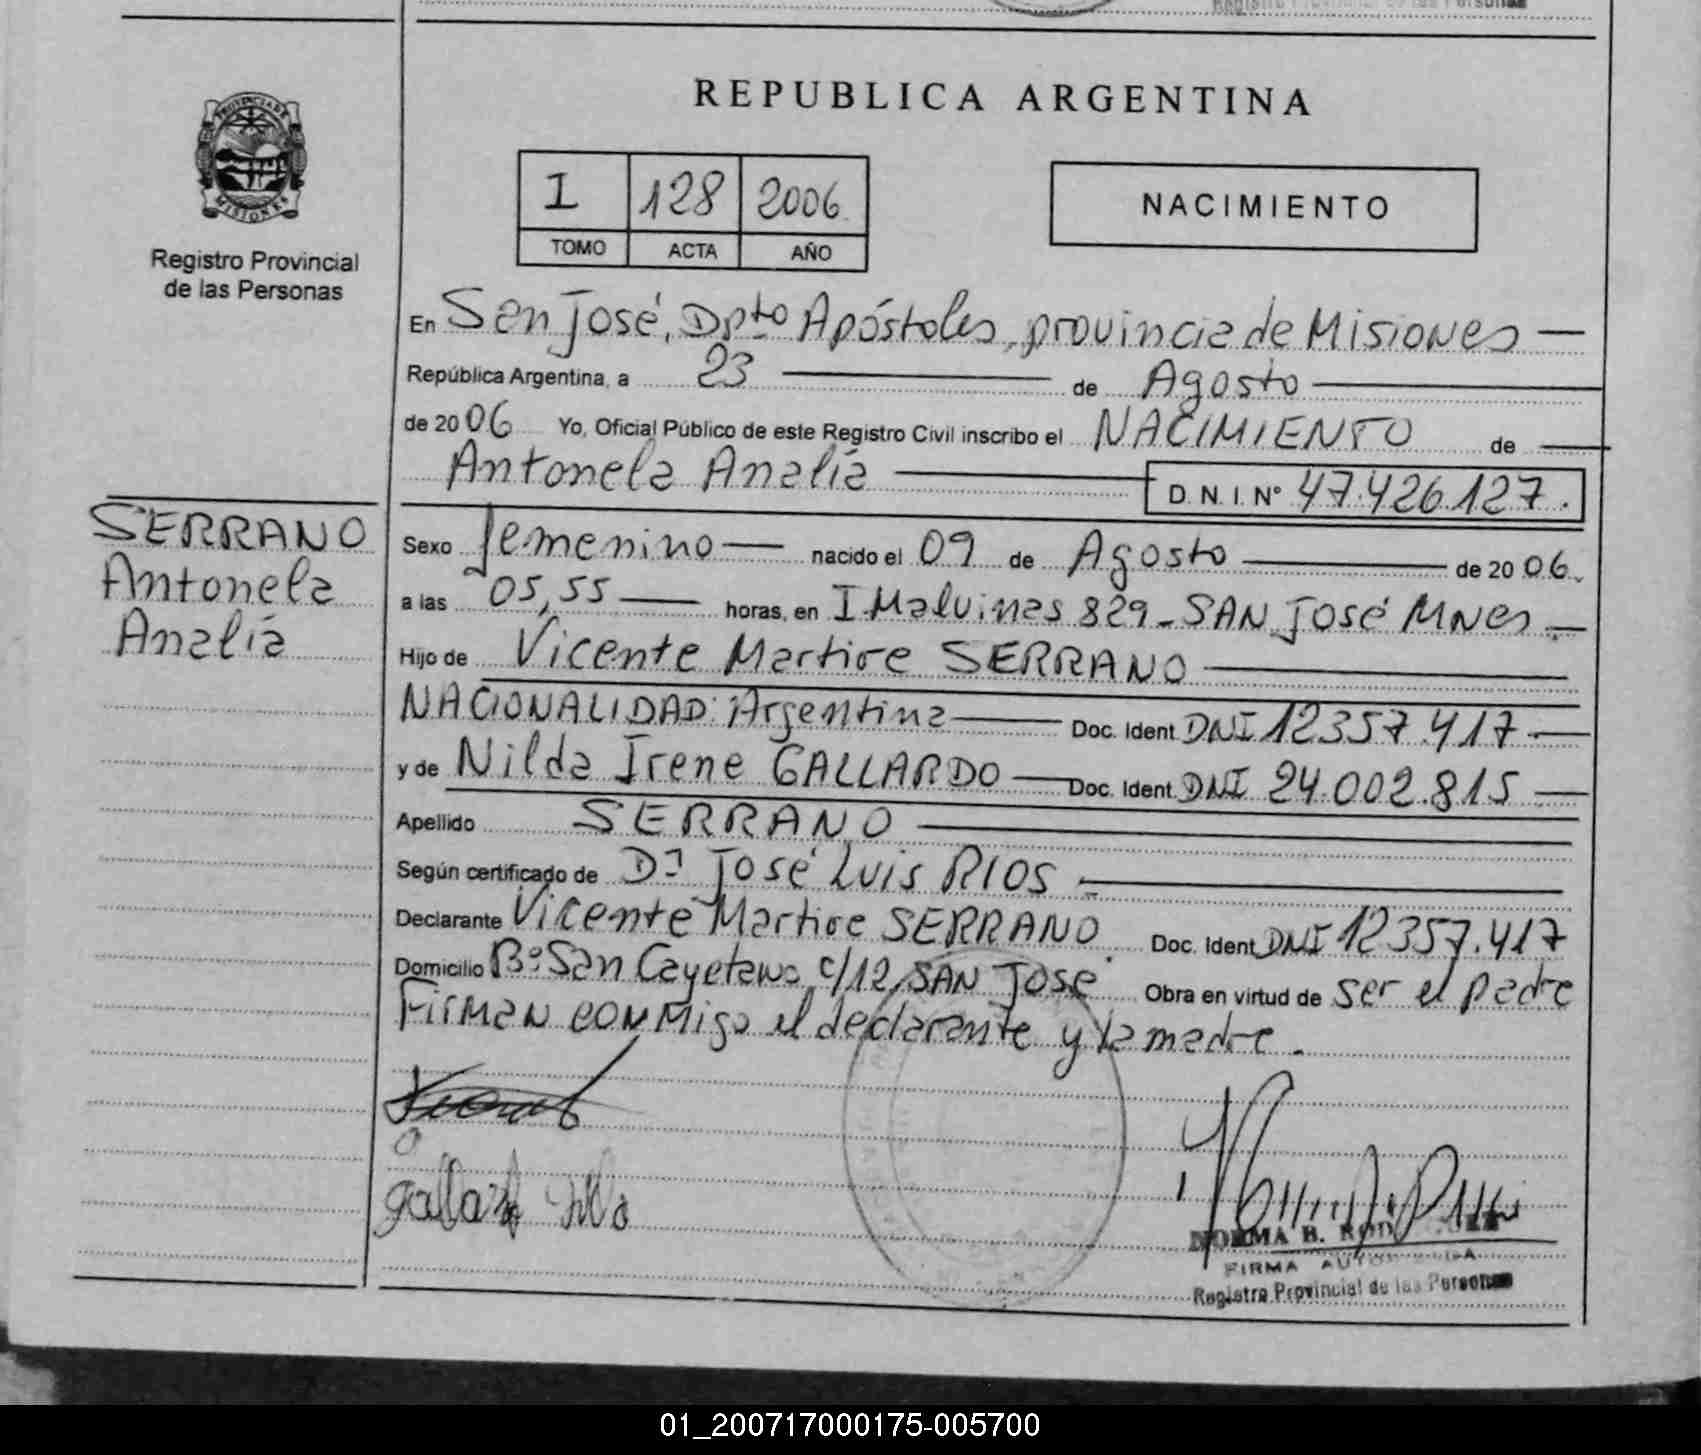 Registro Provincial de las Personas
PROVINCIA DE
MISIONES
Registro Provincial
de las Personas
REPUBLICA ARGENTINA
I 128 2006
TOMO ACTA AÑO
NACIMIENTO
En San José, Dpto Apóstoles, provincia de Misiones
República Argentina, a 23 de Agosto
de 2006 Yo, Oficial Público de este Registro Civil inscribo el NACIMIENTO de
Antonela Analía D.N.I. Nº 47.426.127.
SERRANO
Antonela
Analía
Sexo femenino nacido el 09 de Agosto de 2006.
a las 05,55 horas, en I. Malvinas 829 - SAN José MNES.
Hijo de Vicente Martire SERRANO
NACIONALIDAD: Argentina Doc. Ident. DNI 12357.417
y de Nilda Irene GALLARDO Doc. Ident. DNI 24.002.815
Apellido SERRANO
Según certificado de Dr José Luis RIOS
Declarante Vicente Martire SERRANO Doc. Ident. DNI 12357.417
Domicilio Bº San Cayetano c/12, SAN JOSE Obra en virtud de ser el padre
Firman conmigo el declarante y la madre.
NORMA B.
FIRMA
Registro Provincial de las Personas
01_200717000175-005700